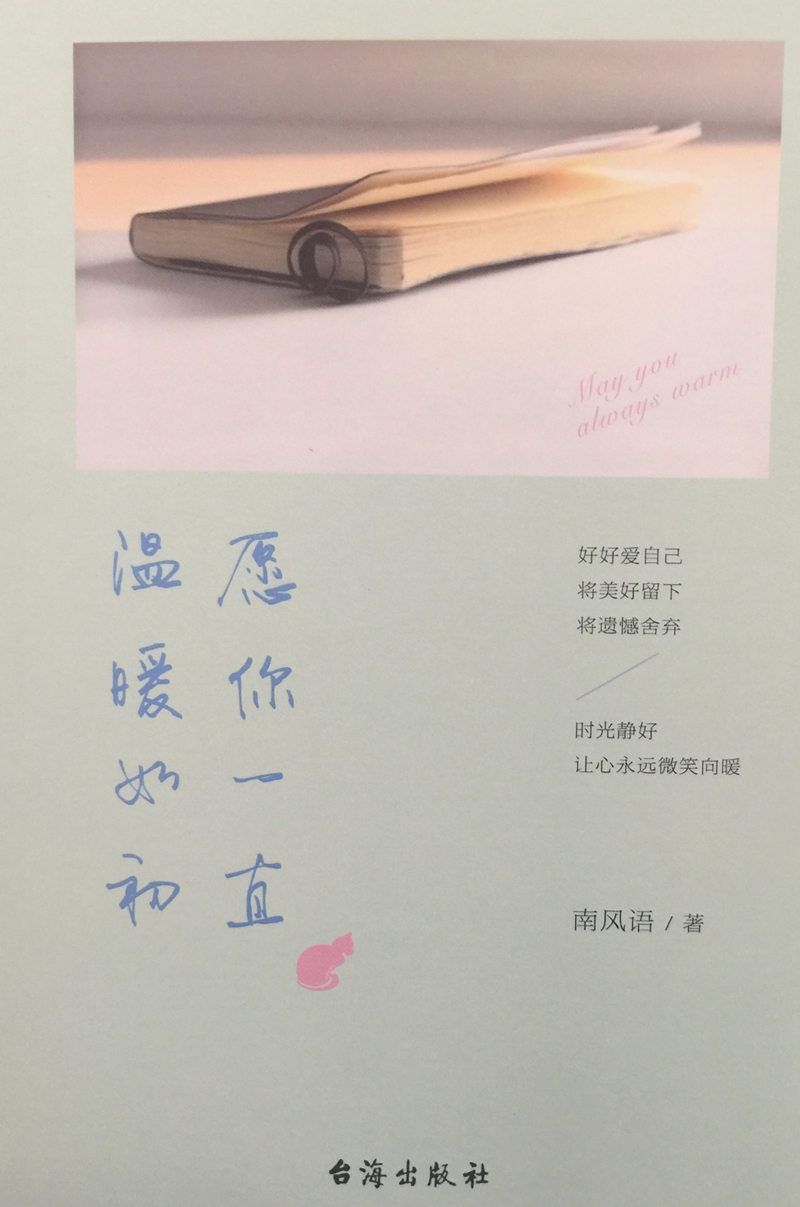 May you
always warm
愿你一直
温暖如初
好好爱自己
将美好留下
将遗憾舍弃
时光静好
让心永远微笑向暖
南风语 / 著
台海出版社